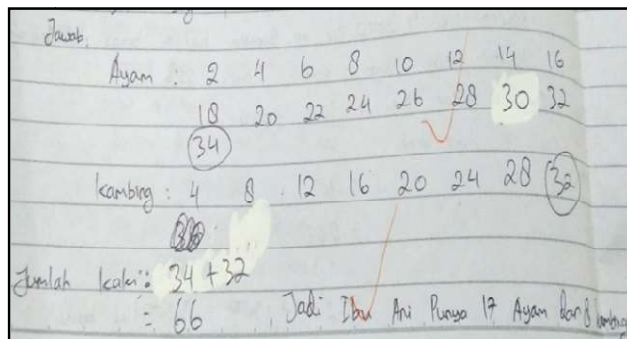 Jawab:
Ayam : 2 4 6 8 10 12 14 16
18 20 22 24 26 28 30 32
34
kambing : 4 8 12 16 20 24 28 32
Jumlah kaki : 34 + 32
= 66 Jadi Ibu Ani Punya 17 Ayam dan 8 kambing